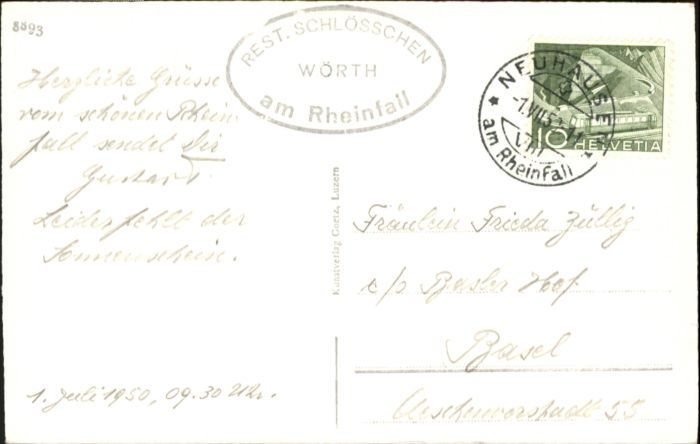 8893
REST. SCHLÖSSCHEN
WÖRTH
am Rheinfall
NEUHAUSEN
am Rheinfall
10 HELVETIA
Herzliche Grüsse
vom schönen Rhein
fall sendet Dir
Gustav.
Leider fehlt der
Sonnenschein.
1. Juli 1950, 09.30 Uhr.
Kunstverlag Goetz, Luzern
Fräulein Frieda Züllig
c/o Basler Hof
Basel
Aeschenvorstadt 55